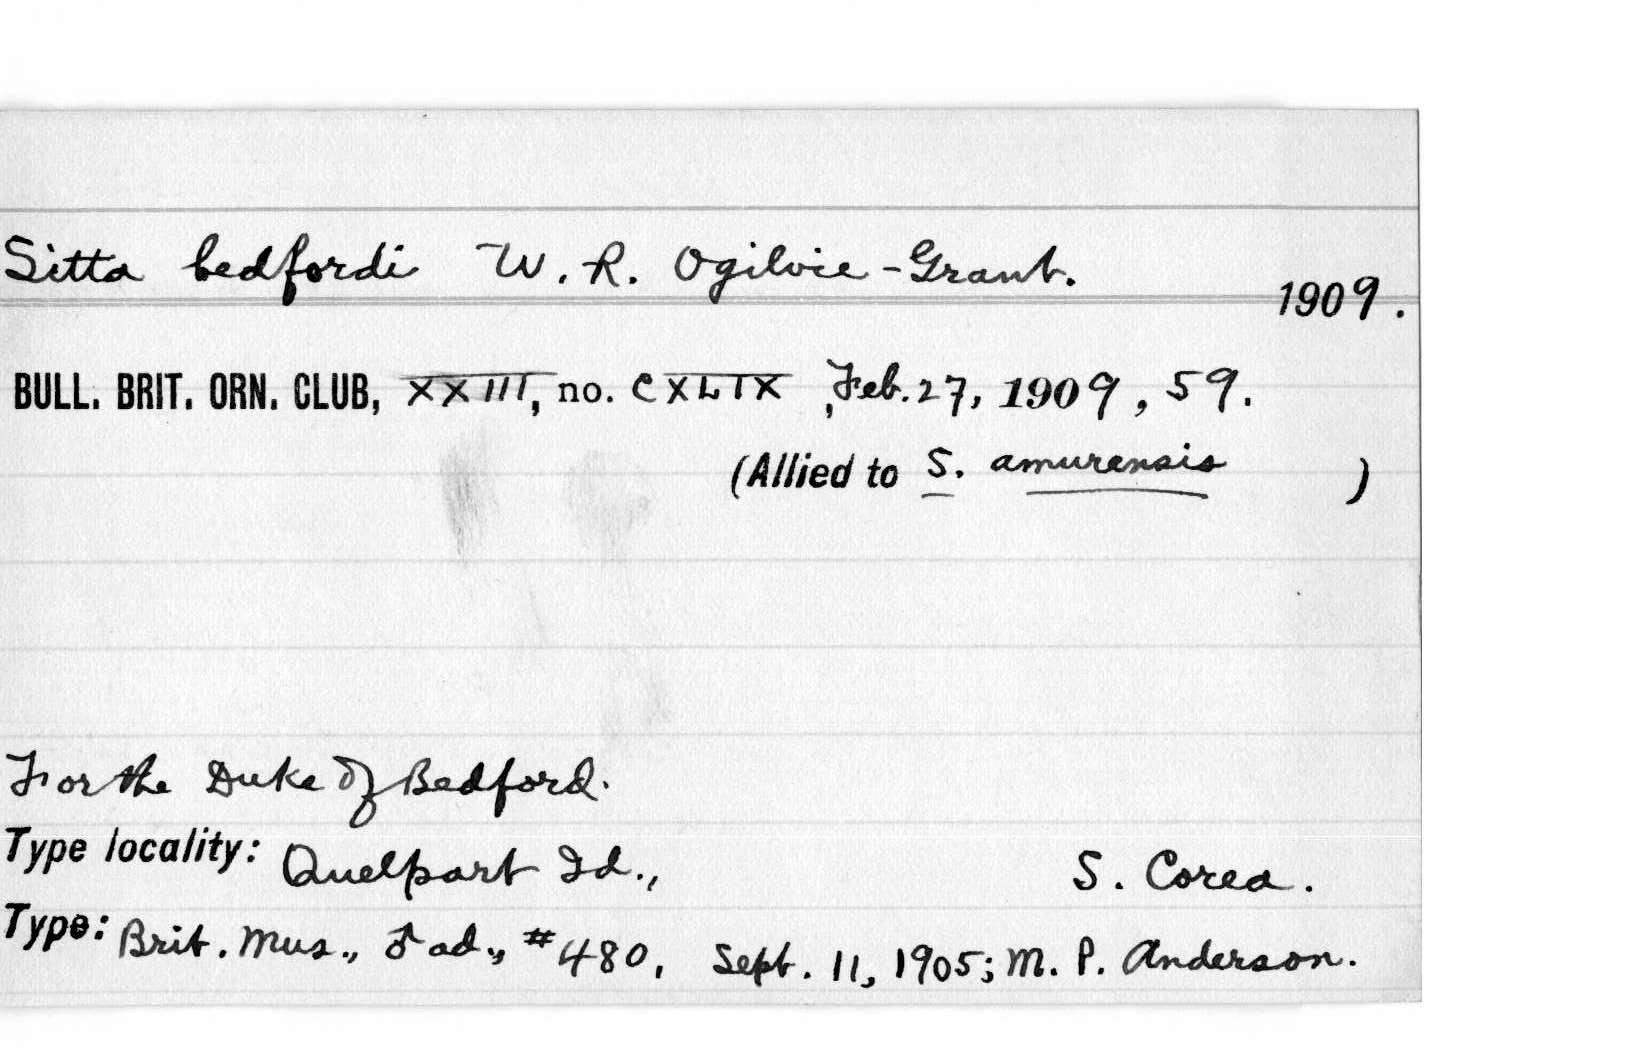 Sitta bedfordi W. R. Ogilvie-Grant.
1909.
BULL. BRIT. ORN. CLUB, XXIII, no. CXLIX, Feb. 27, 1909, 59.
(Allied to S. amurensis )
For the Duke of Bedford.
Type locality: Quelpart Id., S. Corea.
Type: Brit. Mus., ♂ ad., #480, Sept. 11, 1905; M. P. Anderson.